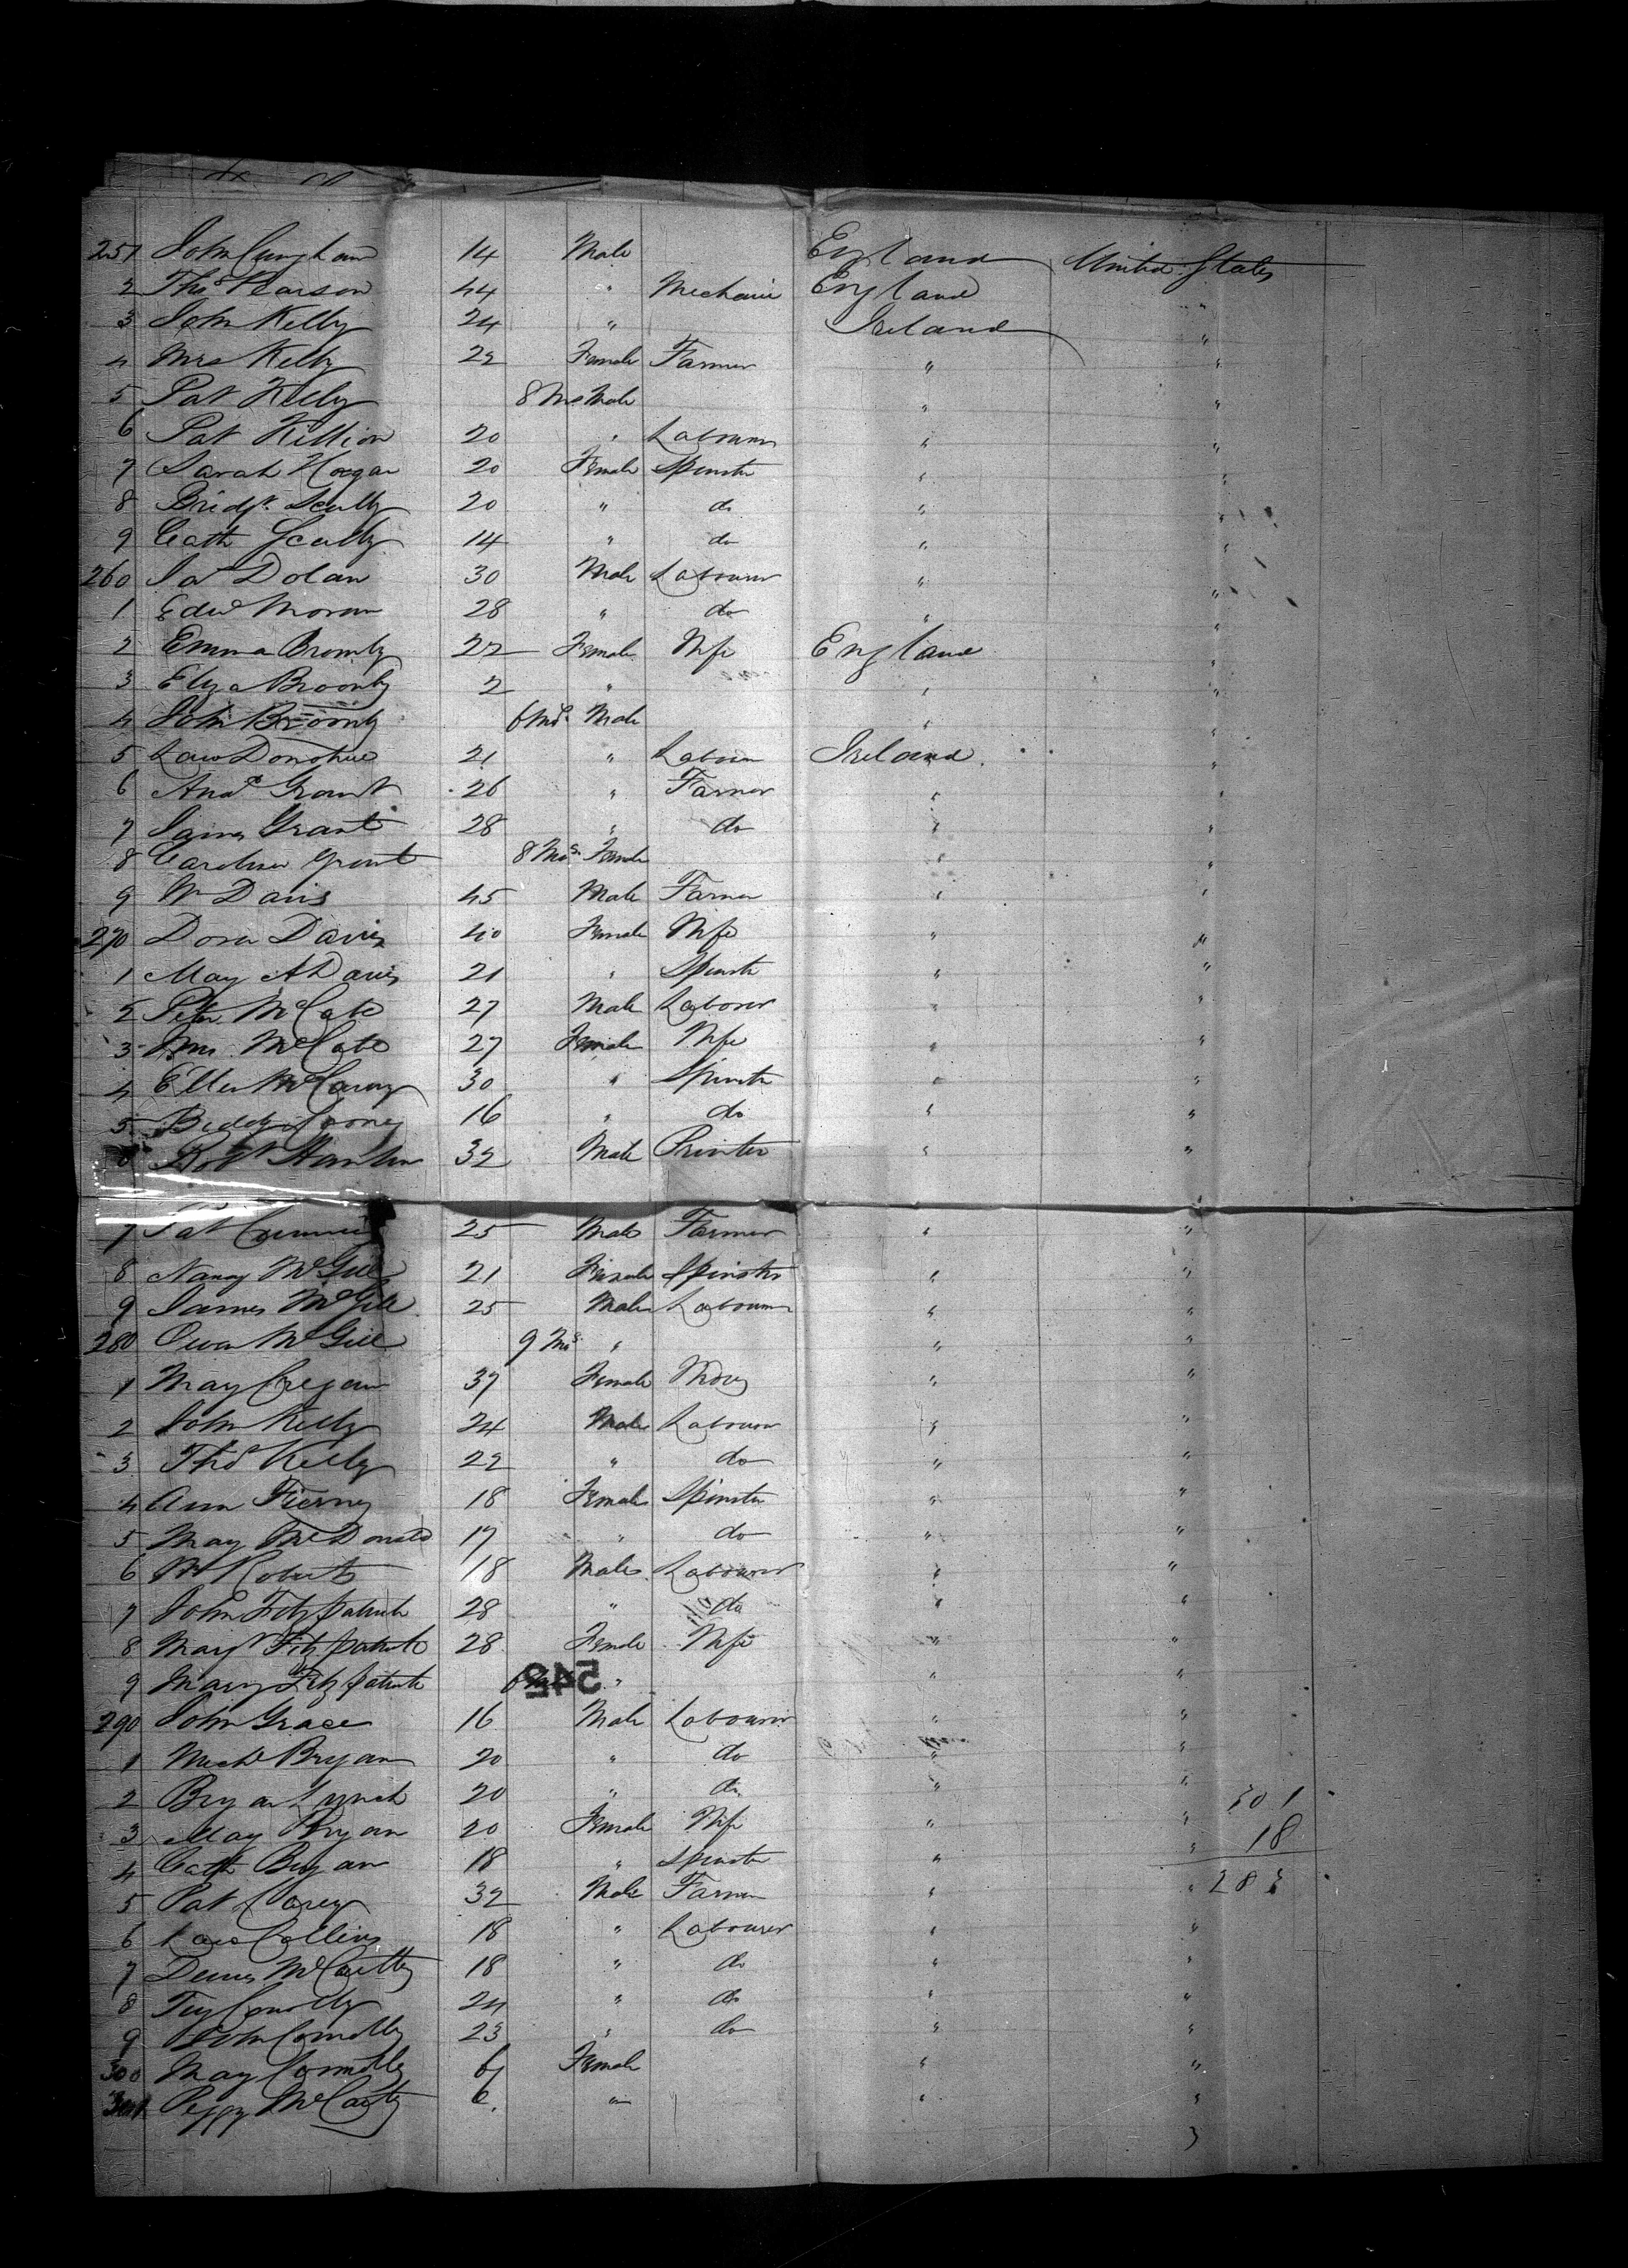 251 John Cungham 14 Male England United States
2 Thos Pearson 44 " Mechanic England "
3 John Kelly 24 " Ireland "
4 Mrs Kelly 22 Female Farmer " "
5 Pat Kelly 8 Ms Male " "
6 Pat Killion 20 " Labourer " "
7 Sarah Hogan 20 Female Spinster " "
8 Bridgt Scully 20 " do " "
9 Cath Scully 14 " do " "
260 Jas Dolan 30 Male Labourer " "
1 Edwd Moran 28 " do " "
2 Emma Bromly 22 Female Wife England "
3 Eliza Broomly 2 " " "
4 John Broomly 6 Mos Male " "
5 Law Donohue 21 " Labour Ireland "
6 Andw Grant 26 " Farmer " "
7 James Grant 28 " do " "
8 Caroline Grant 8 Mos Female " "
9 Wm Davis 45 Male Farmer " "
270 Dora Davis 40 Female Wife " "
1 May A Davis 21 " Spinster " "
2 Peter McCabe 27 Male Laborer " "
3 Mrs McCabe 27 Female Wife " "
4 Ellen McCarny 30 " Spinster " "
5 Biddy Cooney 16 " do " "
6 Robt Hanlon 32 Male Printer " "
7 Pat 25 Male Farmer " "
8 Nancy McGill 21 Female Spinster " "
9 James McGill 25 Male Labourer " "
280 Owen McGill 9 Ms " " "
1 May Cregan 37 Female " "
2 John Kelly 24 Male Labourer " "
3 Thos Kelly 22 " do " "
4 Ann Tierney 18 Female Spinster " "
5 May McDonald 17 " do " "
6 Wm Roberts 18 Male Labourer " "
7 John Fitzpatrick 28 " do " "
8 Margt Fitzpatrick 28 Female Wife " "
9 Mary Fitzpatrick 6 542 " " "
290 John Grace 16 Male Labourer " "
1 Michl Bryan 20 " do " "
2 Bryan Lynch 20 " do " " 301
3 May Bryan 20 Female Wife " " 18
4 Cath Bryan 18 " Spinster " "
5 Pat Carey 32 Male Farmer " " 283
6 Law Collins 18 " Labourer " "
7 Denis McCarthy 18 " do " "
8 Tiy Conolly 24 " do " "
9 John Connolly 23 " do " "
300 May Connolly 6 Female " "
301 Peggy McCarty 6 " " "